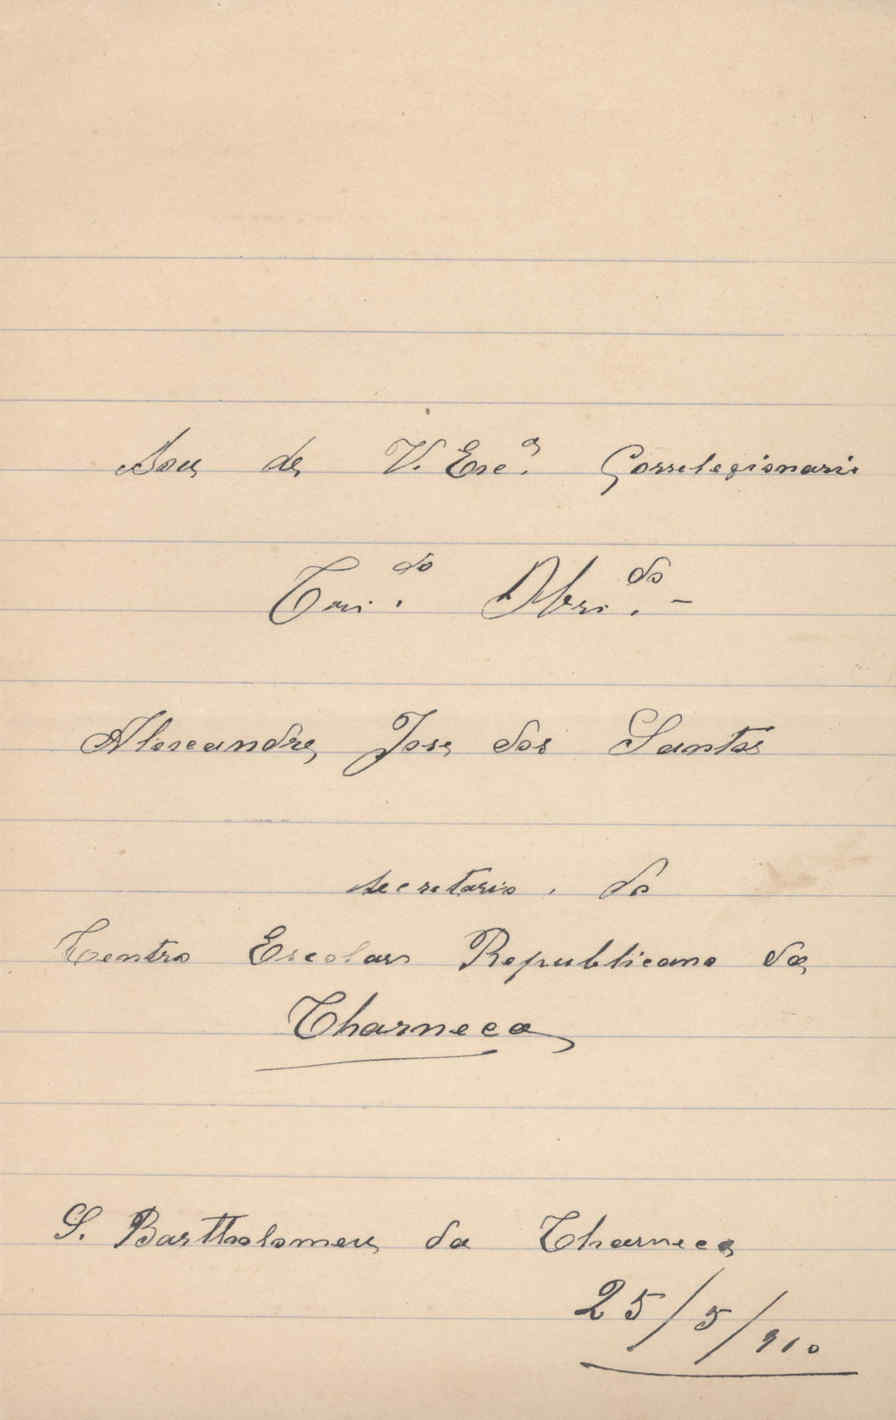 Sou de V. Exc.ª Correlegionario
Cri.do Obri.do -
Alexandre Jose dos Santos
secretario do
Centro Escolar Republicano da
Charneca
S. Bartholomeu da Charneca
25/5/910